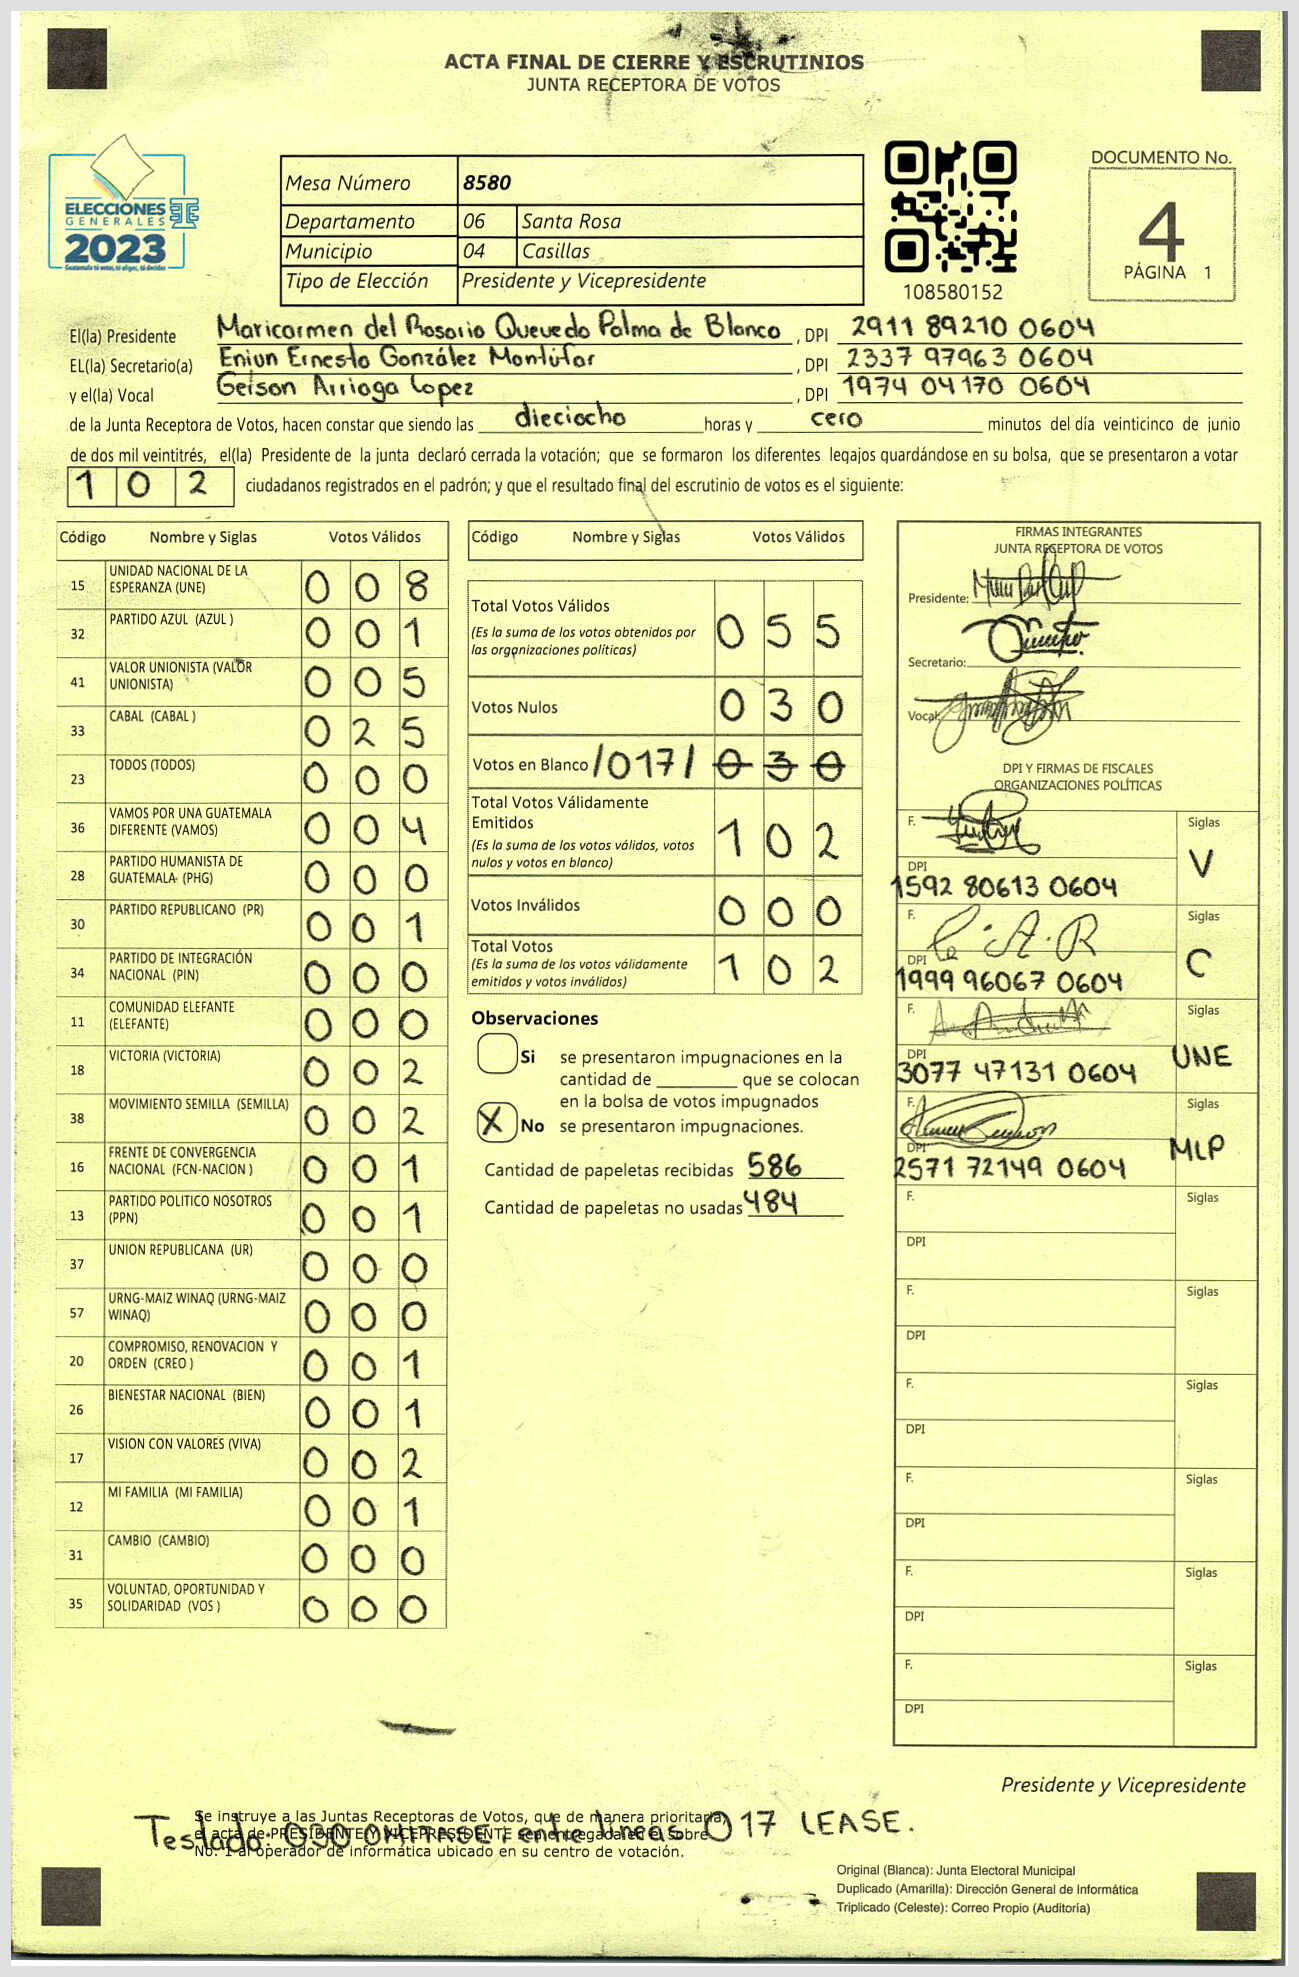 ACTA FINAL DE CIERRE Y ESCRUTINIOS
JUNTA RECEPTORA DE VOTOS
ELECCIONES
GENERALES
2023
Guatemala tú votas, tú eliges, tú decides
Mesa Número 8580
Departamento 06 Santa Rosa
Municipio 04 Casillas
Tipo de Elección Presidente y Vicepresidente
108580152
DOCUMENTO No.
4
PÁGINA 1
El(la) Presidente Maricarmen del Rosario Quevedo Palma de Blanco, DPI 2911 89210 0604
EL(la) Secretario(a) Eniun Ernesto González Montúfar, DPI 2337 97963 0604
y el(la) Vocal Geison Arriaga Lopez, DPI 1974 04170 0604
de la Junta Receptora de Votos, hacen constar que siendo las dieciocho horas y cero minutos del día veinticinco de junio
de dos mil veintitrés, el(la) Presidente de la junta declaró cerrada la votación; que se formaron los diferentes legajos guardándose en su bolsa, que se presentaron a votar
102 ciudadanos registrados en el padrón; y que el resultado final del escrutinio de votos es el siguiente:
Código Nombre y Siglas Votos Válidos
15 UNIDAD NACIONAL DE LA
ESPERANZA (UNE) 008
32 PARTIDO AZUL (AZUL ) 001
41 VALOR UNIONISTA (VALOR
UNIONISTA) 005
33 CABAL (CABAL ) 025
23 TODOS (TODOS) 000
36 VAMOS POR UNA GUATEMALA
DIFERENTE (VAMOS) 004
28 PARTIDO HUMANISTA DE
GUATEMALA (PHG) 000
30 PARTIDO REPUBLICANO (PR) 001
34 PARTIDO DE INTEGRACIÓN
NACIONAL (PIN) 000
11 COMUNIDAD ELEFANTE
(ELEFANTE) 000
18 VICTORIA (VICTORIA) 002
38 MOVIMIENTO SEMILLA (SEMILLA) 002
16 FRENTE DE CONVERGENCIA
NACIONAL (FCN-NACION ) 001
13 PARTIDO POLITICO NOSOTROS
(PPN) 001
37 UNION REPUBLICANA (UR) 000
57 URNG-MAIZ WINAQ (URNG-MAIZ
WINAQ) 000
20 COMPROMISO, RENOVACION Y
ORDEN (CREO ) 001
26 BIENESTAR NACIONAL (BIEN) 001
17 VISION CON VALORES (VIVA) 002
12 MI FAMILIA (MI FAMILIA) 001
31 CAMBIO (CAMBIO) 000
35 VOLUNTAD, OPORTUNIDAD Y
SOLIDARIDAD (VOS ) 000
Código Nombre y Siglas Votos Válidos
Total Votos Válidos
(Es la suma de los votos obtenidos por
las organizaciones políticas) 055
Votos Nulos 030
Votos en Blanco /017/ 030
Total Votos Válidamente
Emitidos
(Es la suma de los votos válidos, votos
nulos y votos en blanco) 102
Votos Inválidos 000
Total Votos
(Es la suma de los votos válidamente
emitidos y votos inválidos) 102
Observaciones
Si se presentaron impugnaciones en la
cantidad de ________ que se colocan
en la bolsa de votos impugnados
X No se presentaron impugnaciones.
Cantidad de papeletas recibidas 586
Cantidad de papeletas no usadas 484
FIRMAS INTEGRANTES
JUNTA RECEPTORA DE VOTOS
Presidente:
Secretario:
Vocal:
DPI Y FIRMAS DE FISCALES
ORGANIZACIONES POLÍTICAS
F. Siglas
DPI V
1592 80613 0604
F. Siglas
DPI C
1999 96067 0604
F. Siglas
DPI UNE
3077 47131 0604
F. Siglas
DPI MLP
2571 72149 0604
F. Siglas
DPI
F. Siglas
DPI
F. Siglas
DPI
F. Siglas
DPI
F. Siglas
DPI
F. Siglas
DPI
Presidente y Vicepresidente
Se instruye a las Juntas Receptoras de Votos, que de manera prioritaria,
el acta de PRESIDENTE Y VICEPRESIDENTE sea entregada en el sobre
No. 1 al operador de informática ubicado en su centro de votación.
Testado: 030 OMITASE entre lineas 017 LEASE.
Original (Blanca): Junta Electoral Municipal
Duplicado (Amarilla): Dirección General de Informática
Triplicado (Celeste): Correo Propio (Auditoría)